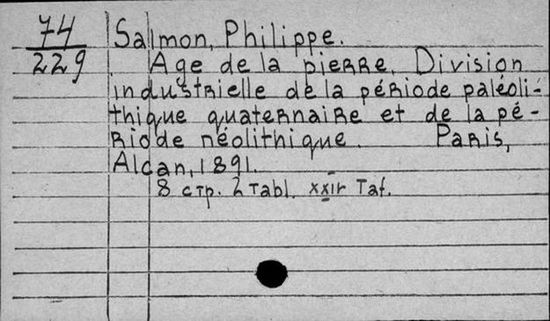 74
229
Salmon, Philippe.
Age de la pierre. Division
industrielle de la période paléoli-
thique quaternaire et de la pé-
riode néolithique. Paris,
Alcan, 1891.
8 стр. 2 табl. Taf.